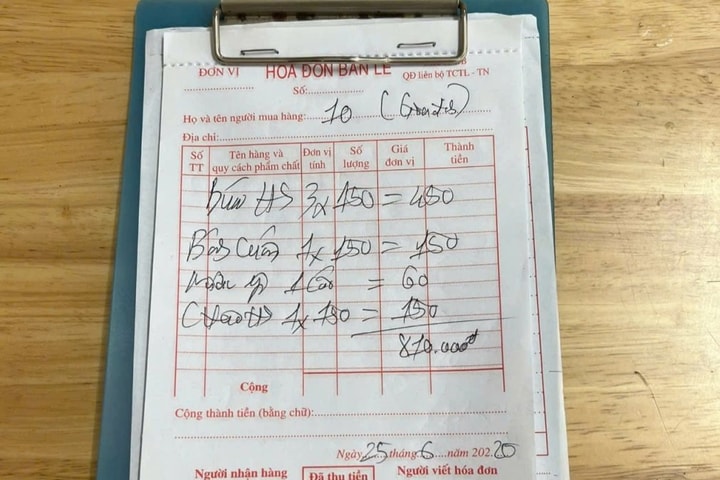 ĐƠN VỊ HÓA ĐƠN BÁN LẺ QĐ liên bộ TCTL - TN
Số:
Họ và tên người mua hàng: 10
Địa chỉ:
Số TT Tên hàng và quy cách phẩm chất Đơn vị tính Số lượng Giá đơn vị Thành tiền
Bún HS 3 x 150 = 450
Bánh Cuốn 1 x 150 = 150
1 = 60
Cháo HS 1 x 150 = 150
810.000đ
Cộng
Cộng thành tiền (bằng chữ):
Ngày 25 tháng 6 năm 202 20
Người nhận hàng Đã thu tiền Người viết hóa đơn